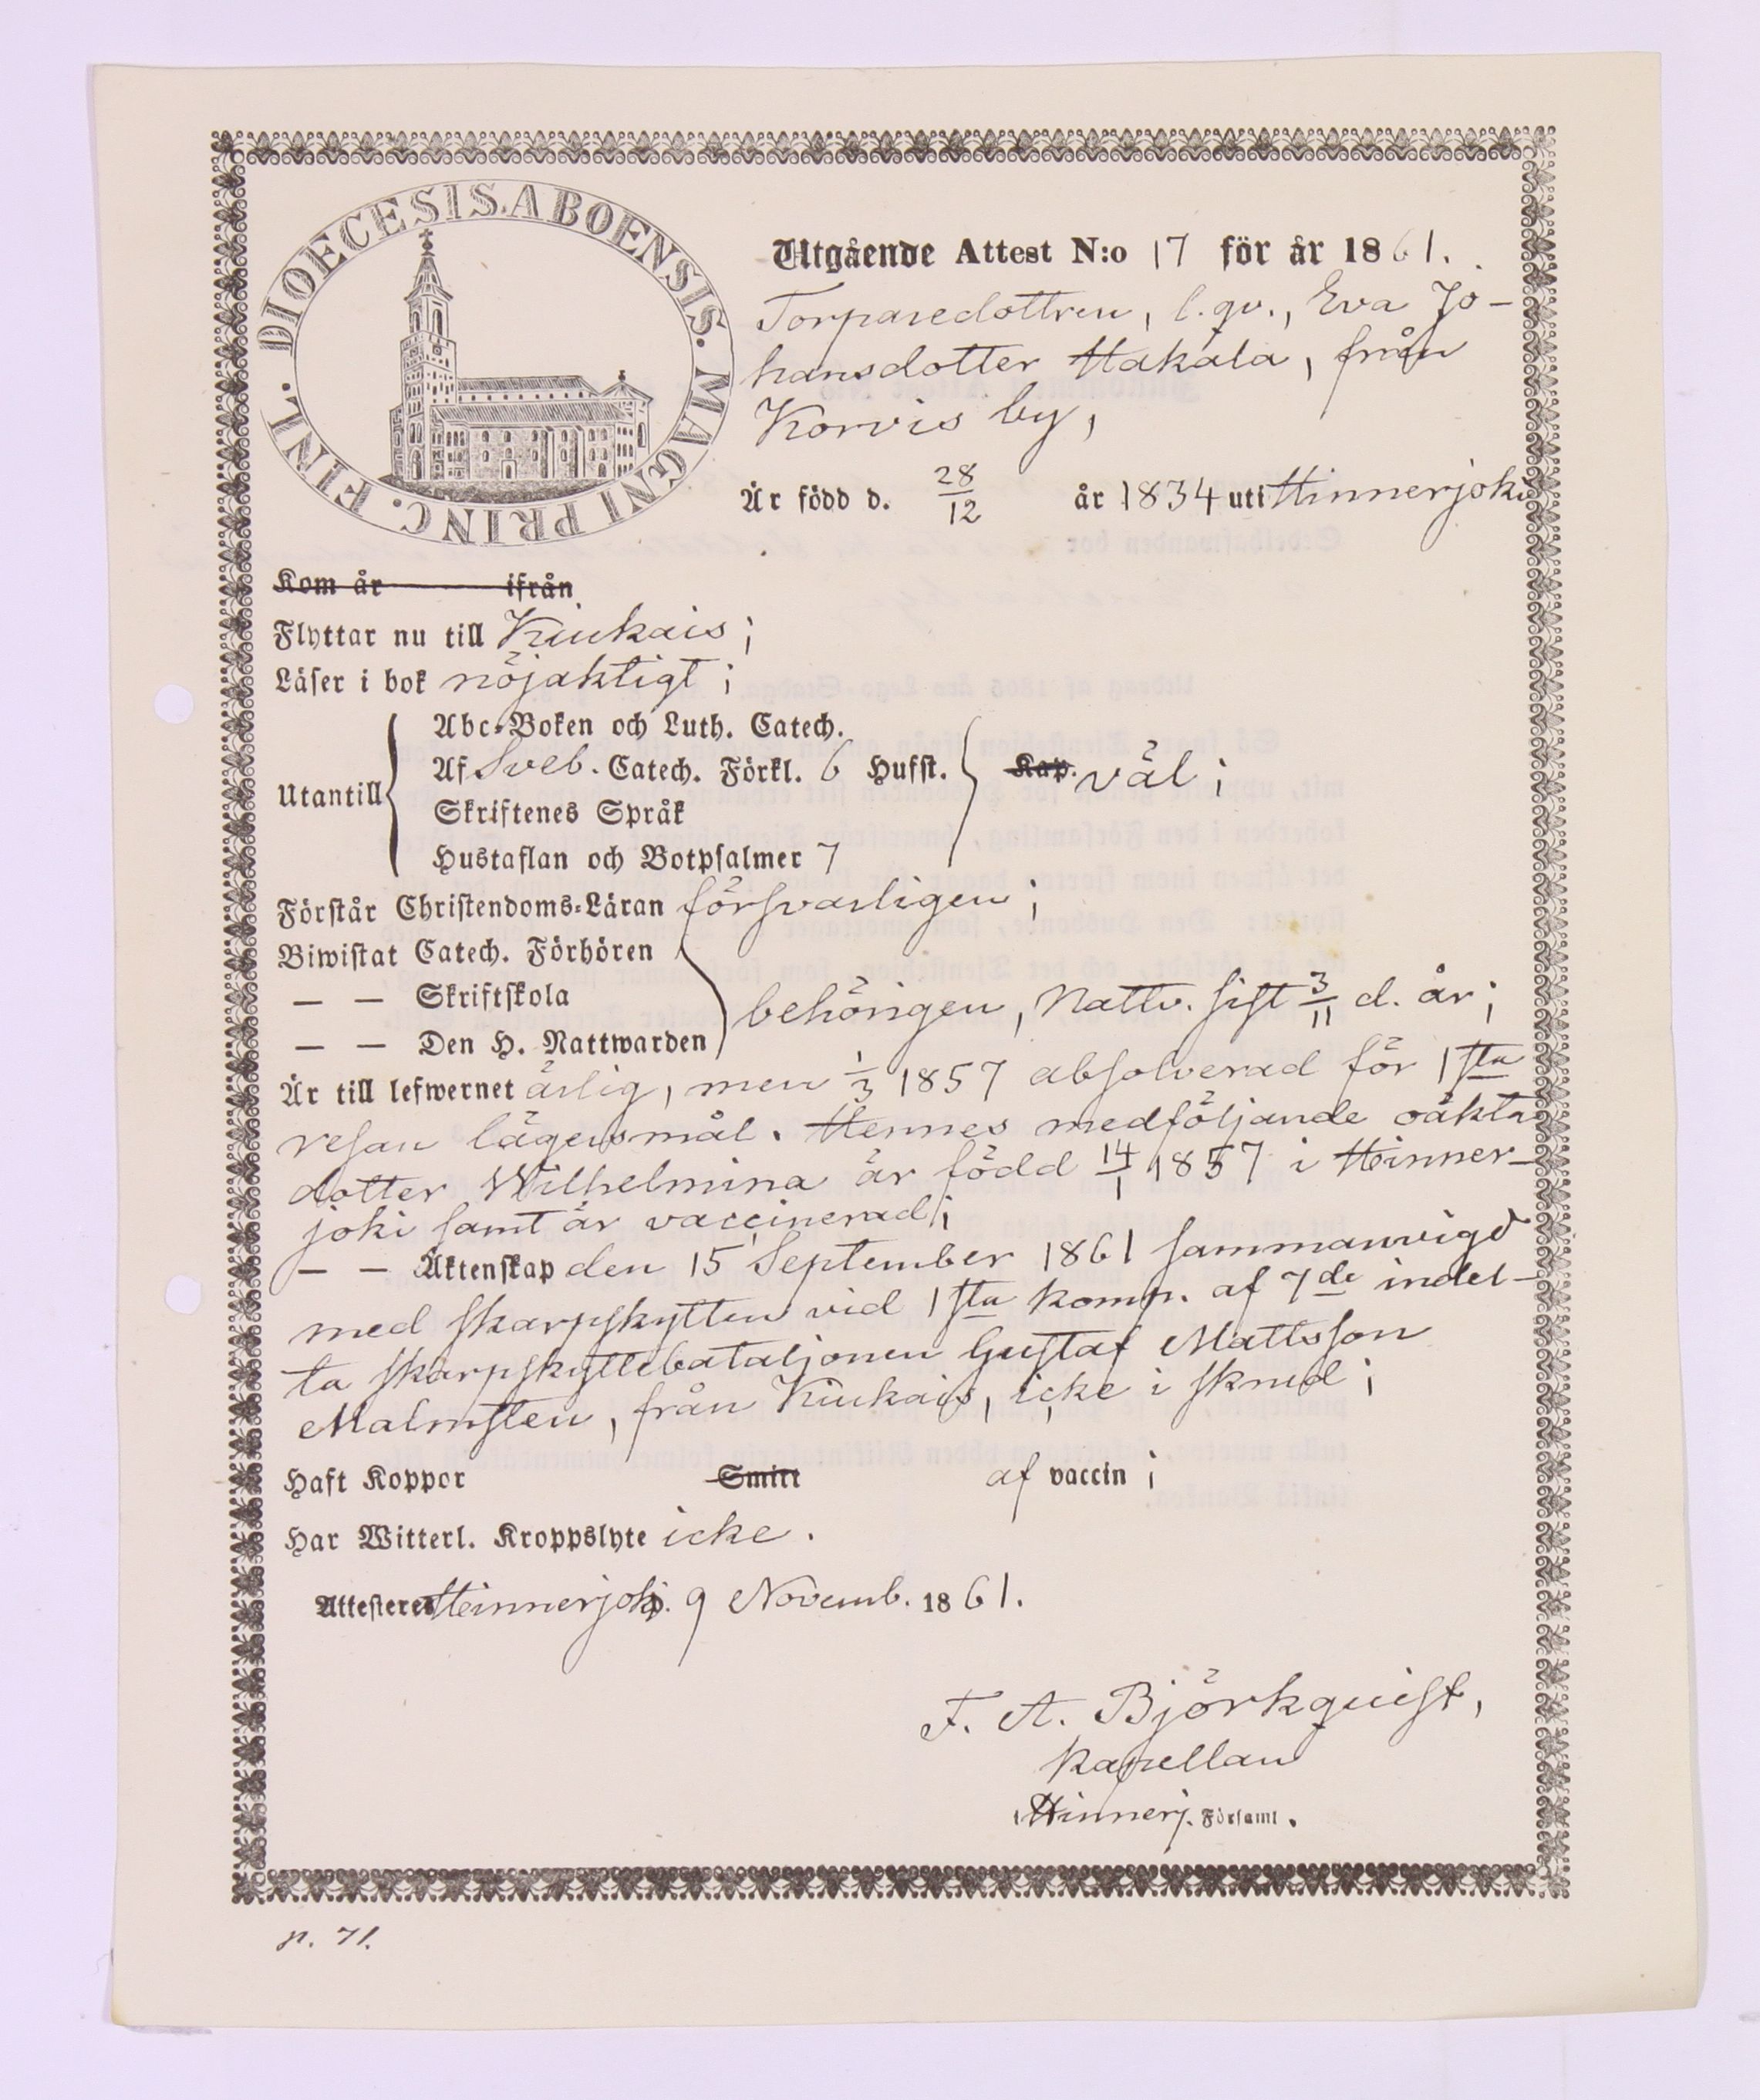 DIOECESIS. ABOENSIS. MAGNI PRINC. FINL.
Utgående Attest N:o 17 för år 1861.
Torparedottren, l. qv., Eva Jo-
hansdotter Hakala, från
Korvis by,
Är född d. 28/12 år 1834 uti Hinnerjoki
Kom år ifrån
Flyttar nu till Kiukais;
Läser i bok nöjaktigt;
Utantill
Abc-Boken och Luth. Catech.
Af Sveb. Catech. Förkl. 6 Hufst.
Skriftenes Språk
Hustaflan och Botpsalmer 7
Kap. väl;
Förstår Christendoms-Läran försvarligen;
Biwistat Catech. Förhören
— — Skriftskola
— — Den H. Nattwarden
behörigen, Nattv. sist 3/11 d. år;
Är till lefwernet ärlig, men 1/3 1857 absolverad för 1sta
resan lägersmål. Hennes medföljande oäkta
dotter Wilhelmina är född 14/1 1857 i Hinner-
joki samt är vaccinerad;
— — Äktenskap den 15 September 1861 sammanvigd
med skarpskytten vid 1sta komp. af 7de indel-
ta skarpskyttebataljonen Gustaf Mattsson
Malmsten, från Kiukais, icke i skrud;
Haft Koppor Smitt af vaccin;
Har Witterl. Kroppslyte icke.
Attesteres Hinnerjoki d. 9 Novemb. 1861.
F. A. Björkquist,
Kapellan
i Hinnerj. Församl.
p. 71.